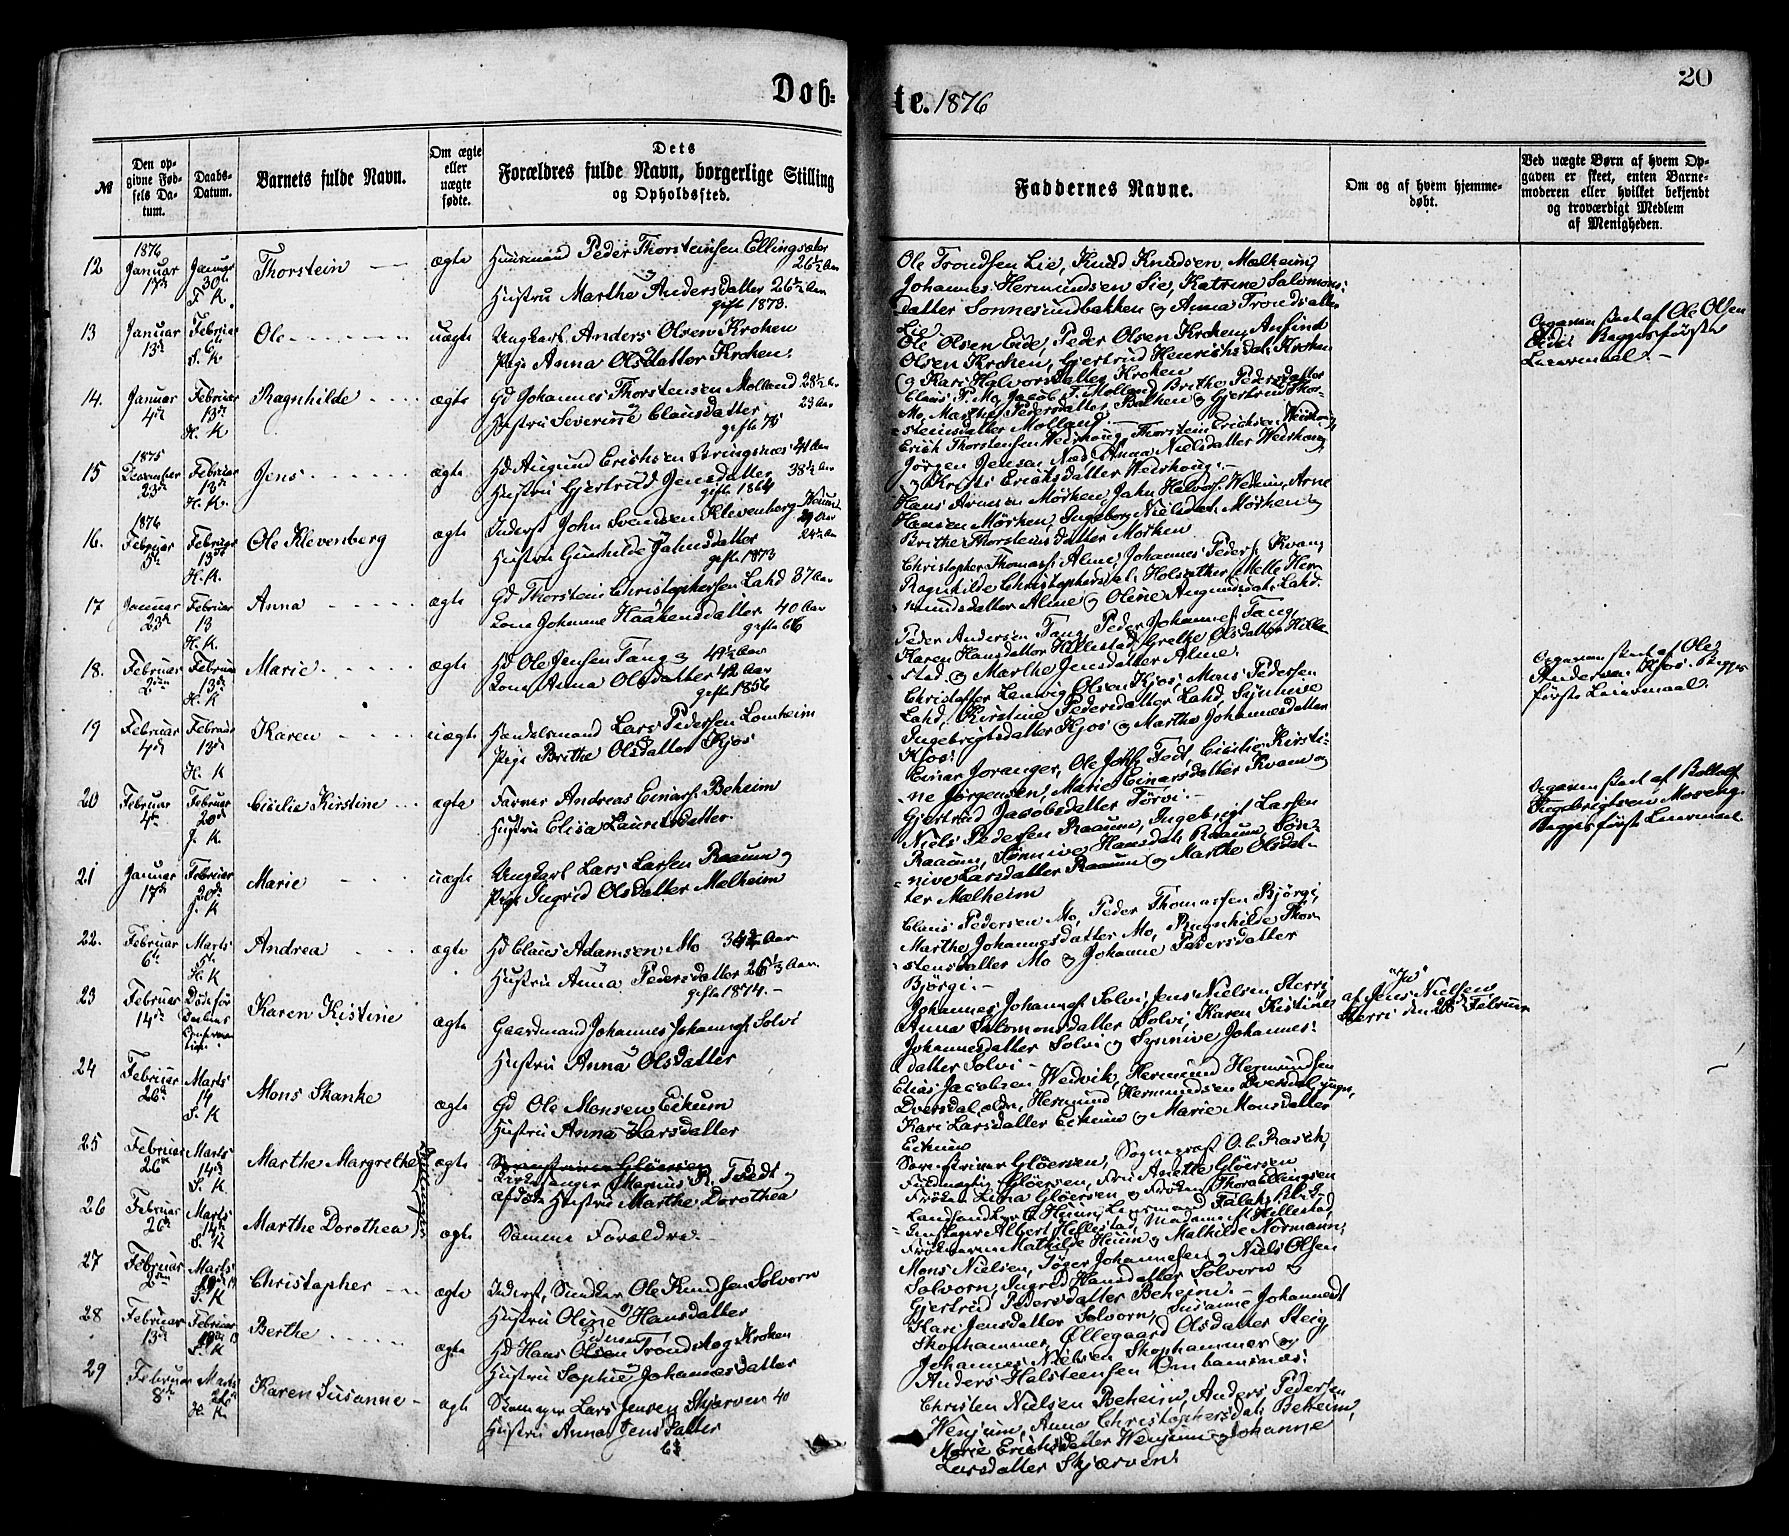 Døb=
te. 1876
20
№
Den op-
givne Fød-
sels Da-
tum.
Daabs-
Datum.
Barnets fulde Navn.
Om ægte
eller
uægte
fødte.
Dets
Forældres fulde Navn, borgerlige Stilling
og Opholdssted.
Faddernes Navne.
Om og af hvem hjemme-
døbt.
Ved uægte Børn af hvem Op-
gaven er skeet, enten Barne-
moderen eller hvilket bekjendt
og troværdigt Medlem
af Menigheden.
12
1876
Januar
17de
Januar
30te
F. K.
Thorstein
ægte
Huusmand Peder Thorsteinsen Ellingsæter
26½ Aar
Hustru Marthe Andersdatter 26½ Aar
gift 1873.
Ole Trondsen Lie, Knud Knudsen Mælheim,
Johannes Hermundsen Lie, Katrine Salomons-
datter Sonnesundbakken og Anna Trondsdatter
Lie
13
Januar
13de
Februar
6te
S. K
Ole
uægte
Ungkarl Anders Olsen Kroken
Pige Anna Olsdatter Kroken.
Ole Olsen Eide, Peder Olsen Kroken, Ansind
Olsen Kroken, Gjertrud Henrichsdat. Kroken
og Kari Halvorsdatter Kroken
Opgaven skeet af Ole Olsen
Eide. Begges første
Leiermaal. -
14.
Januar
4de
Februar
13de
H. K
Ragnhilde
ægte
Gd Johannes Thorstensen Molland 28½ A.
23 Aar
Hustru Severine Clausdatter
gift 75
Claus P. Mo, Jacob T. Molland, Brithe Pedersdatter
Mo, Marthe Pedersdatter Bakken og Gjertrud Thor-
steinsdatter Molland.
15
1875
December
23de
Februar
13de
H. K.
Jens
ægte
Gd Augund Erichsen Bringsnæs 41 Aar
38½ Aar
Hustru Gjertrud Jensdatter
gift 1864
Erich Thorstensen Weirhoug, Thorstein Erichsen Weirhoug,
Jørgen Jensen Næs, Anna Nielsdatter Weirhoug
og Kristi Eriksdatter Weirhoug. -
16.
1876
Februar
5te
Februar
13de
H. K.
Ole Klevenberg
ægte
Inderst John Svendsen Klevenberg
29 Aar
24½ Aar
Hustru Gunhilde Jahnsdatter
gift 1873
Hans Arnesen Mørken, Jahn Halvors. Weum, Arne
Hansen Mørken, Ingeborg Nielsdat. Mørken og
Brithe Thorsteinsdatter Mørken
17
Januar
23de
Februar
13
H. K.
Anna
ægte
Gd Thorstein Christophersen Lahd 37 Aar
Kone Johanne Haakensdatter 40 Aar
gifte 66
Christopher Thomass. Alme, Johannes Peders. Kvam,
Ragnhilde Christophersdat. Holsæther, Melle Her-
mundsdatter Alme og Oline Augundsdat. Lahd.
18.
Februar
2den
Februar
13de
H. K
Marie
ægte
Gd Ole Jensen Tang 49½ Aar
Kone Anna Olsdatter 42 Aar
gift 1856
Peder Andersen Tang, Peder Johannes. Tang,
Karen Hansdatter Hillestad, Grethe Olsdatter Hille-
stad og Marthe Jensdatter Alme.
19
Februar
4de
Februar
13de
H. K
Karen
uægte
Handelsmand Lars Pedersen Lomheim
Pige Brithe Olsdatter Kjos
Christoffer Ludvig Olsen Kjos, Mons Pedersen
Lahd, Kirstine Pedersdatter Lahd, Synneve
Ingebrigtsdatter Kjos og Marthe Johannesdatter
Kjos.
Opgaven skeet af Ole
Andersen Kjos. Begges
første Leiermaal.
20
Februar
4de
Februar
20de
J. K.
Cicilie Kirstine
ægte
Farver Andreas Einars. Beheim
Hustru Elisa Lauritsdatter.
Einar Joranger, Ole Joh. Fedt, Cicilie Kirsti-
ne Jørgensen, Marie Einarsdatter Kvam og
Gjertrud Jacobsdatter Tørvi.
21
Januar
17de
Februar
20de
J. K
Marie
uægte
Ungkarl Lars Larsen Raaum og
Pige Ingrid Olsdatter Melheim
Niels Pedersen Raaum, Ingebrigt Larsen
Raaum, Sønnive Hansdat. Raaum, Søn-
nive Larsdatter Raaum og Marthe Olsdat-
ter Mælheim
Opgaven skeet af
Ingebrigtsen Moreng.
Begges første Leiermaal.
22.
Februar
6te
Marts
5te
H. K
Andrea
ægte
Gd Claus Adamsen Mo 34½ Aar
Hustru Anna Pedersdatter 26½ Aar.
gifte 1874. -
Claus Pedersen Mo, Peder Thomassen Bjørgi,
Marthe Johannesdatter Mo, Ragnhilde Thor-
stensdatter Mo og Johanne Pedersdatter
Bjørgi. -
23
Februar
14de
Døde før
Daabens
Karen Kistine
ægte
Gaardmand Johannes Johannes. Solvi
Hustru Anna Olsdatter
Johannes Johannes. Solvi, Jens Nielsen Sterri
Anna Salomonsdatter Solvi, Karen Kistine
Johannesdatter Solvi og Synnive Johannes-
datter Solvi -
"Ja"
af Jens Nielsen
Sterri den 28de Februar
24
Februar
26de
Marts
14
S. K
Mons Skanke
ægte
Gd Ole Monsen Eikum
Hustru Anna Larsdatter
Elias Jacobsen Wedvik, Hermund Hermundsen
Dversdal, ældre, Hermund Hermundsen Dversdal, yngre,
Kari Larsdatter Eikum og Marie Monsdatter
Eikum
25
Februar
26de
Marts
14de
S. K
Marthe Margrethe
Tvillinger
ægte
Sorenskriver Gløersen
Kirkesanger Magnus R. Tvedt og
afdøde Hustru Marthe Dorothea
Sorenskriver Gløersen, Sogneprest O. C. Rasch,
Fuldmægtig Gløersen, Fru Anette Gløersen
Frøken Lina Gløersen og Frøken Thora Ellingsen
26
Februar
26de
Marts
14de
S. K
Marthe Dorothea
ægte
Samme Forældre.
Landhandler Heum, Lensmand Falck,
Albert Hillestad, Madame M. Hillestad,
Frøknerne Mathilde Heum og Mathilde Normann,
27
Februar
2den
Marts
S. K
Christopher
ægte
Inderst, Snedker Ole Knudsen Solvorn
Hustru Oline Hansdatter
Mons Nielsen, Tøger Johannesen og Niels Olsen
Solvorn, Ingrid Hansdatter Solvorn og
Gjertrud Pedersdatter Beheim. -
28
Februar
13de
Februar
S. K
Berthe
ægte
Gd Hans Olsen Trondskog Kroken
Hustru Sophie Johannesdatter
Kari Jensdatter Solvorn, Susanne Johannesdt
Skophammer, Øllegaard Olsdatter Steig,
Johannes Nielsen Skophammer og
Anders Halsteensen Ombamsnæs.
29
Februar
8de
Marts
26de
H. K
Karen Susanne
ægte
Skomager Lars Jensen Skjærven 40
Hustru Anna Jensdatter
63
Christen Nielsen Beheim, Anders Pedersen
Wenjum, Anna Christophersdat. Beheim,
Marie Erichsdatter Wenjum og Johanne
Larsdatter Skjærven.